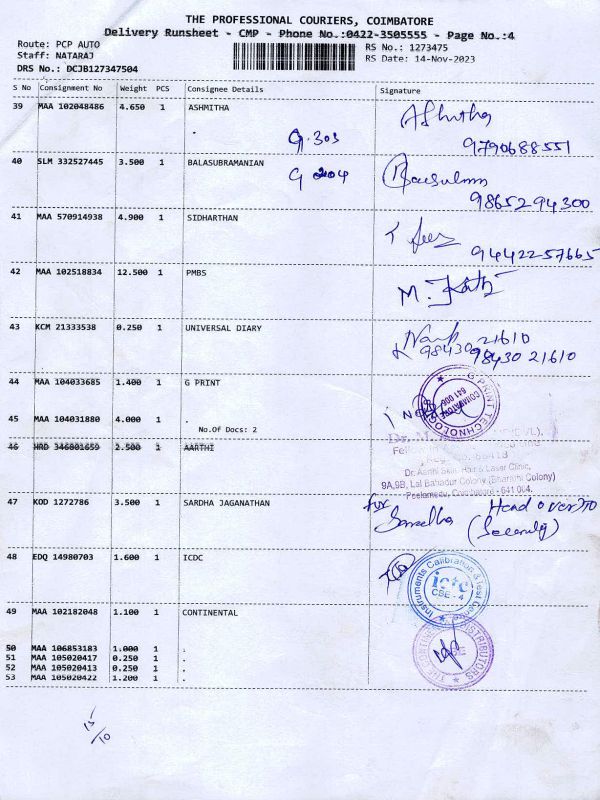 THE PROFESSIONAL COURIERS, COIMBATORE
Delivery Runsheet - CMP - Phone No.:0422-3505555 - Page No.:4
Route: PCP AUTO
RS No.: 1273475
Staff: NATARAJ
RS Date: 14-Nov-2023
DRS No.: DCJB127347504
S No Consignment No Weight PCS Consignee Details Signature
39 MAA 102048486 4.650 1 ASHMITHA Ashmitha
. G.303 9790688551
40 SLM 332527445 3.500 1 BALASUBRAMANIAN
G 204 9865294300
41 MAA 570914938 4.900 1 SIDHARTHAN
9442257665
42 MAA 102518834 12.500 1 PMBS M.
43 KCM 21333538 0.250 1 UNIVERSAL DIARY
98430 21610
98430 21610
44 MAA 104033685 1.400 1 G PRINT
G PRINT TECHNOLOGY
COIMBATORE
641 006
45 MAA 104031880 4.000 1 .
No.Of Docs: 2
46 HRD 346801659 2.500 1 AARTHI
Dr. Aarthi Skin, Hair & Laser Clinic,
9A,9B, Lal Bahadur Colony (Bharathi Colony)
Peelamedu, Coimbatore - 641 004.
47 KOD 1272786 3.500 1 SARDHA JAGANATHAN
for Head over to
Saradha (Security)
48 EDQ 14980703 1.600 1 ICDC
Instruments Calibration & Test Centre
ictc
CBE - 4
49 MAA 102182048 1.100 1 CONTINENTAL
DISTRIBUTORS
50 MAA 106853183 1.000 1 .
51 MAA 105020417 0.250 1 .
52 MAA 105020413 0.250 1 .
53 MAA 105020422 1.200 1 .
15/10